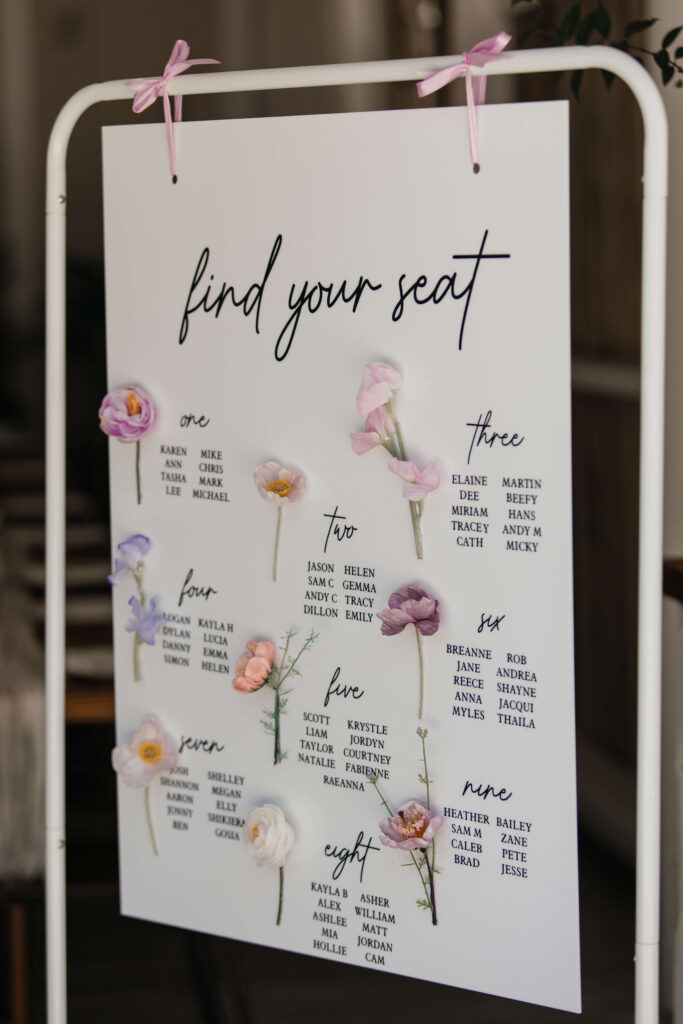 find your seat
one
KAREN MIKE
ANN CHRIS
TASHA MARK
LEE MICHAEL
two
JASON HELEN
SAM C GEMMA
ANDY C TRACY
DILLON EMILY
three
ELAINE MARTIN
DEE BEEFY
MIRIAM HANS
TRACEY ANDY M
CATH MICKY
four
LOGAN KAYLA H
DYLAN LUCIA
DANNY EMMA
SIMON HELEN
five
SCOTT KRYSTLE
LIAM JORDYN
TAYLOR COURTNEY
NATALIE FABIENNE
RAEANNA
six
BREANNE ROB
JANE ANDREA
REECE SHAYNE
ANNA JACQUI
MYLES THAILA
seven
JOSH SHELLEY
SHANNON MEGAN
AARON ELLY
JONNY SHIKIERA
BEN GOSIA
eight
KAYLA B ASHER
ALEX WILLIAM
ASHLEE MATT
MIA JORDAN
HOLLIE CAM
nine
HEATHER BAILEY
SAM M ZANE
CALEB PETE
BRAD JESSE